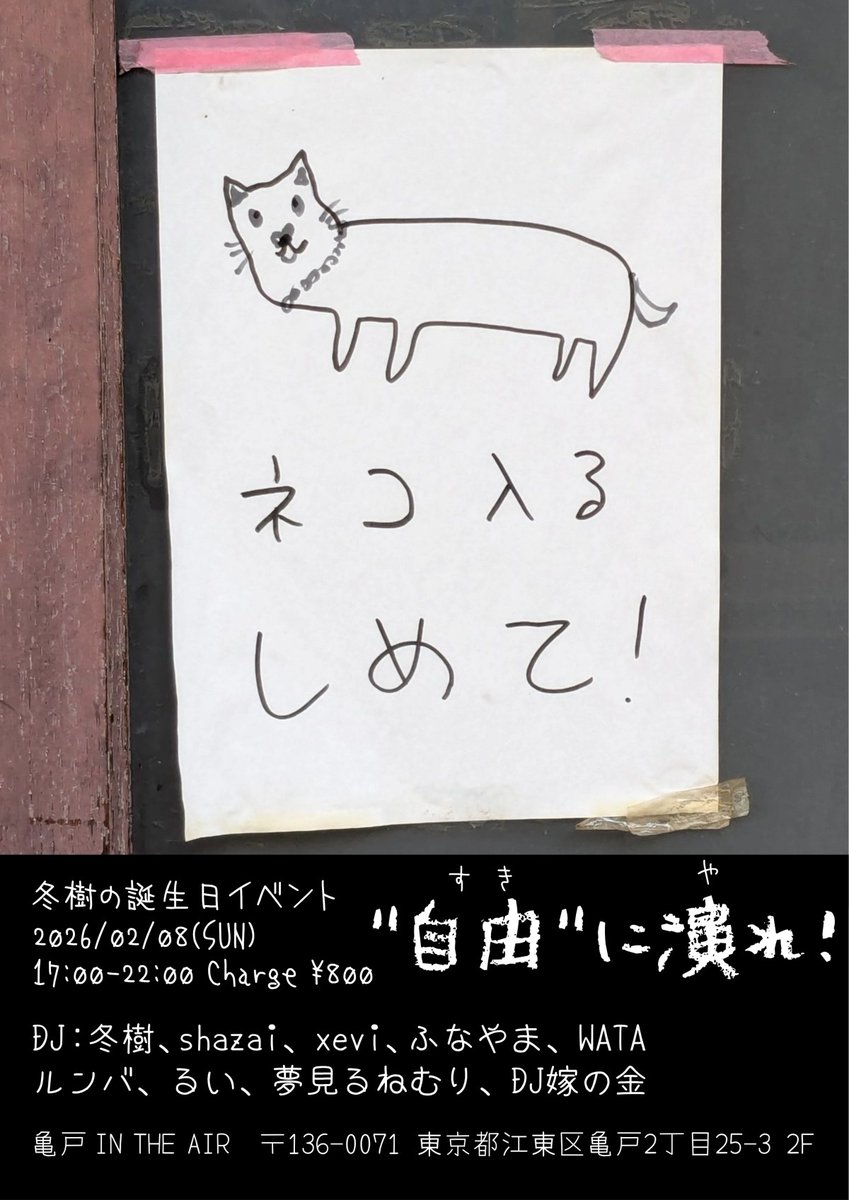 ネコ入る
しめて!
冬樹の誕生日イベント
2026/02/08(SUN)
17:00-22:00 Charge ¥800
すき や
"自由"に演れ!
DJ:冬樹、shazai、xevi、ふなやま、WATA
ルンバ、るい、夢見るねむり、DJ嫁の金
亀戸 IN THE AIR 〒136-0071 東京都江東区亀戸2丁目25-3 2F